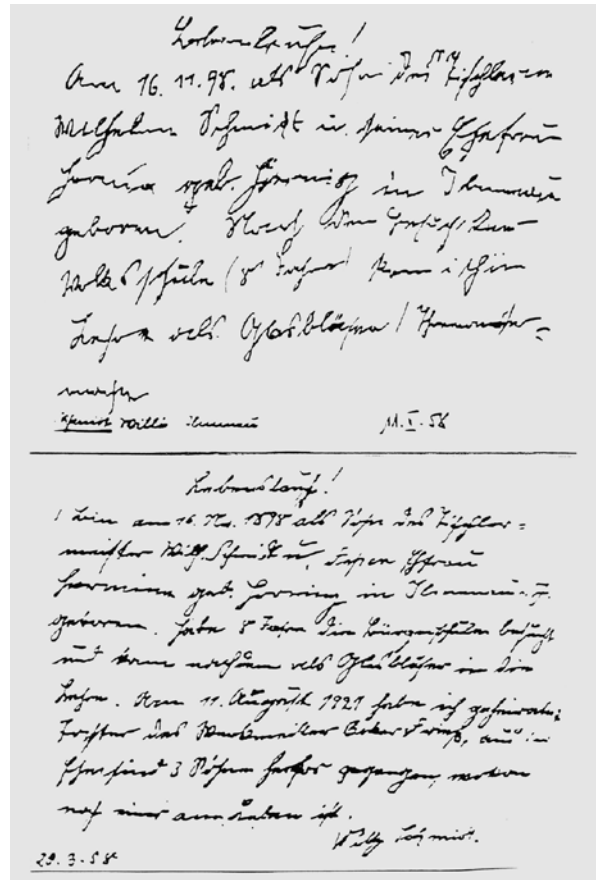 Lebenslauf!
Am 16.11.98. als Sohn des Tischlers
Wilhelm Schmidt u. seiner Ehefrau
geb. in Ilmenau
geboren. Nach dem Besuch der
Volksschule (8 Jahre) kam ich in
Lehre als Glasbläser / Thermometer-
macher
Schmidt Willi Ilmenau 11.I.58
Lebenslauf!
bin am 16. No. 1898 als Sohn des Tischler=
meister Wilh. Schmidt u. dessen Ehefrau
Hermine geb. in Ilmenau
geboren. Habe 8 Jahre die Bürgerschule besucht
und kam nachdem als Glasbläser in die
Lehre. Am 11. August 1921 habe ich geheiratet
Tochter des Werkmeister Oskar aus
Ehe sind 3 Söhne gegangen, wovon
noch einer am Leben ist.
Willy Schmidt.
29.3.58